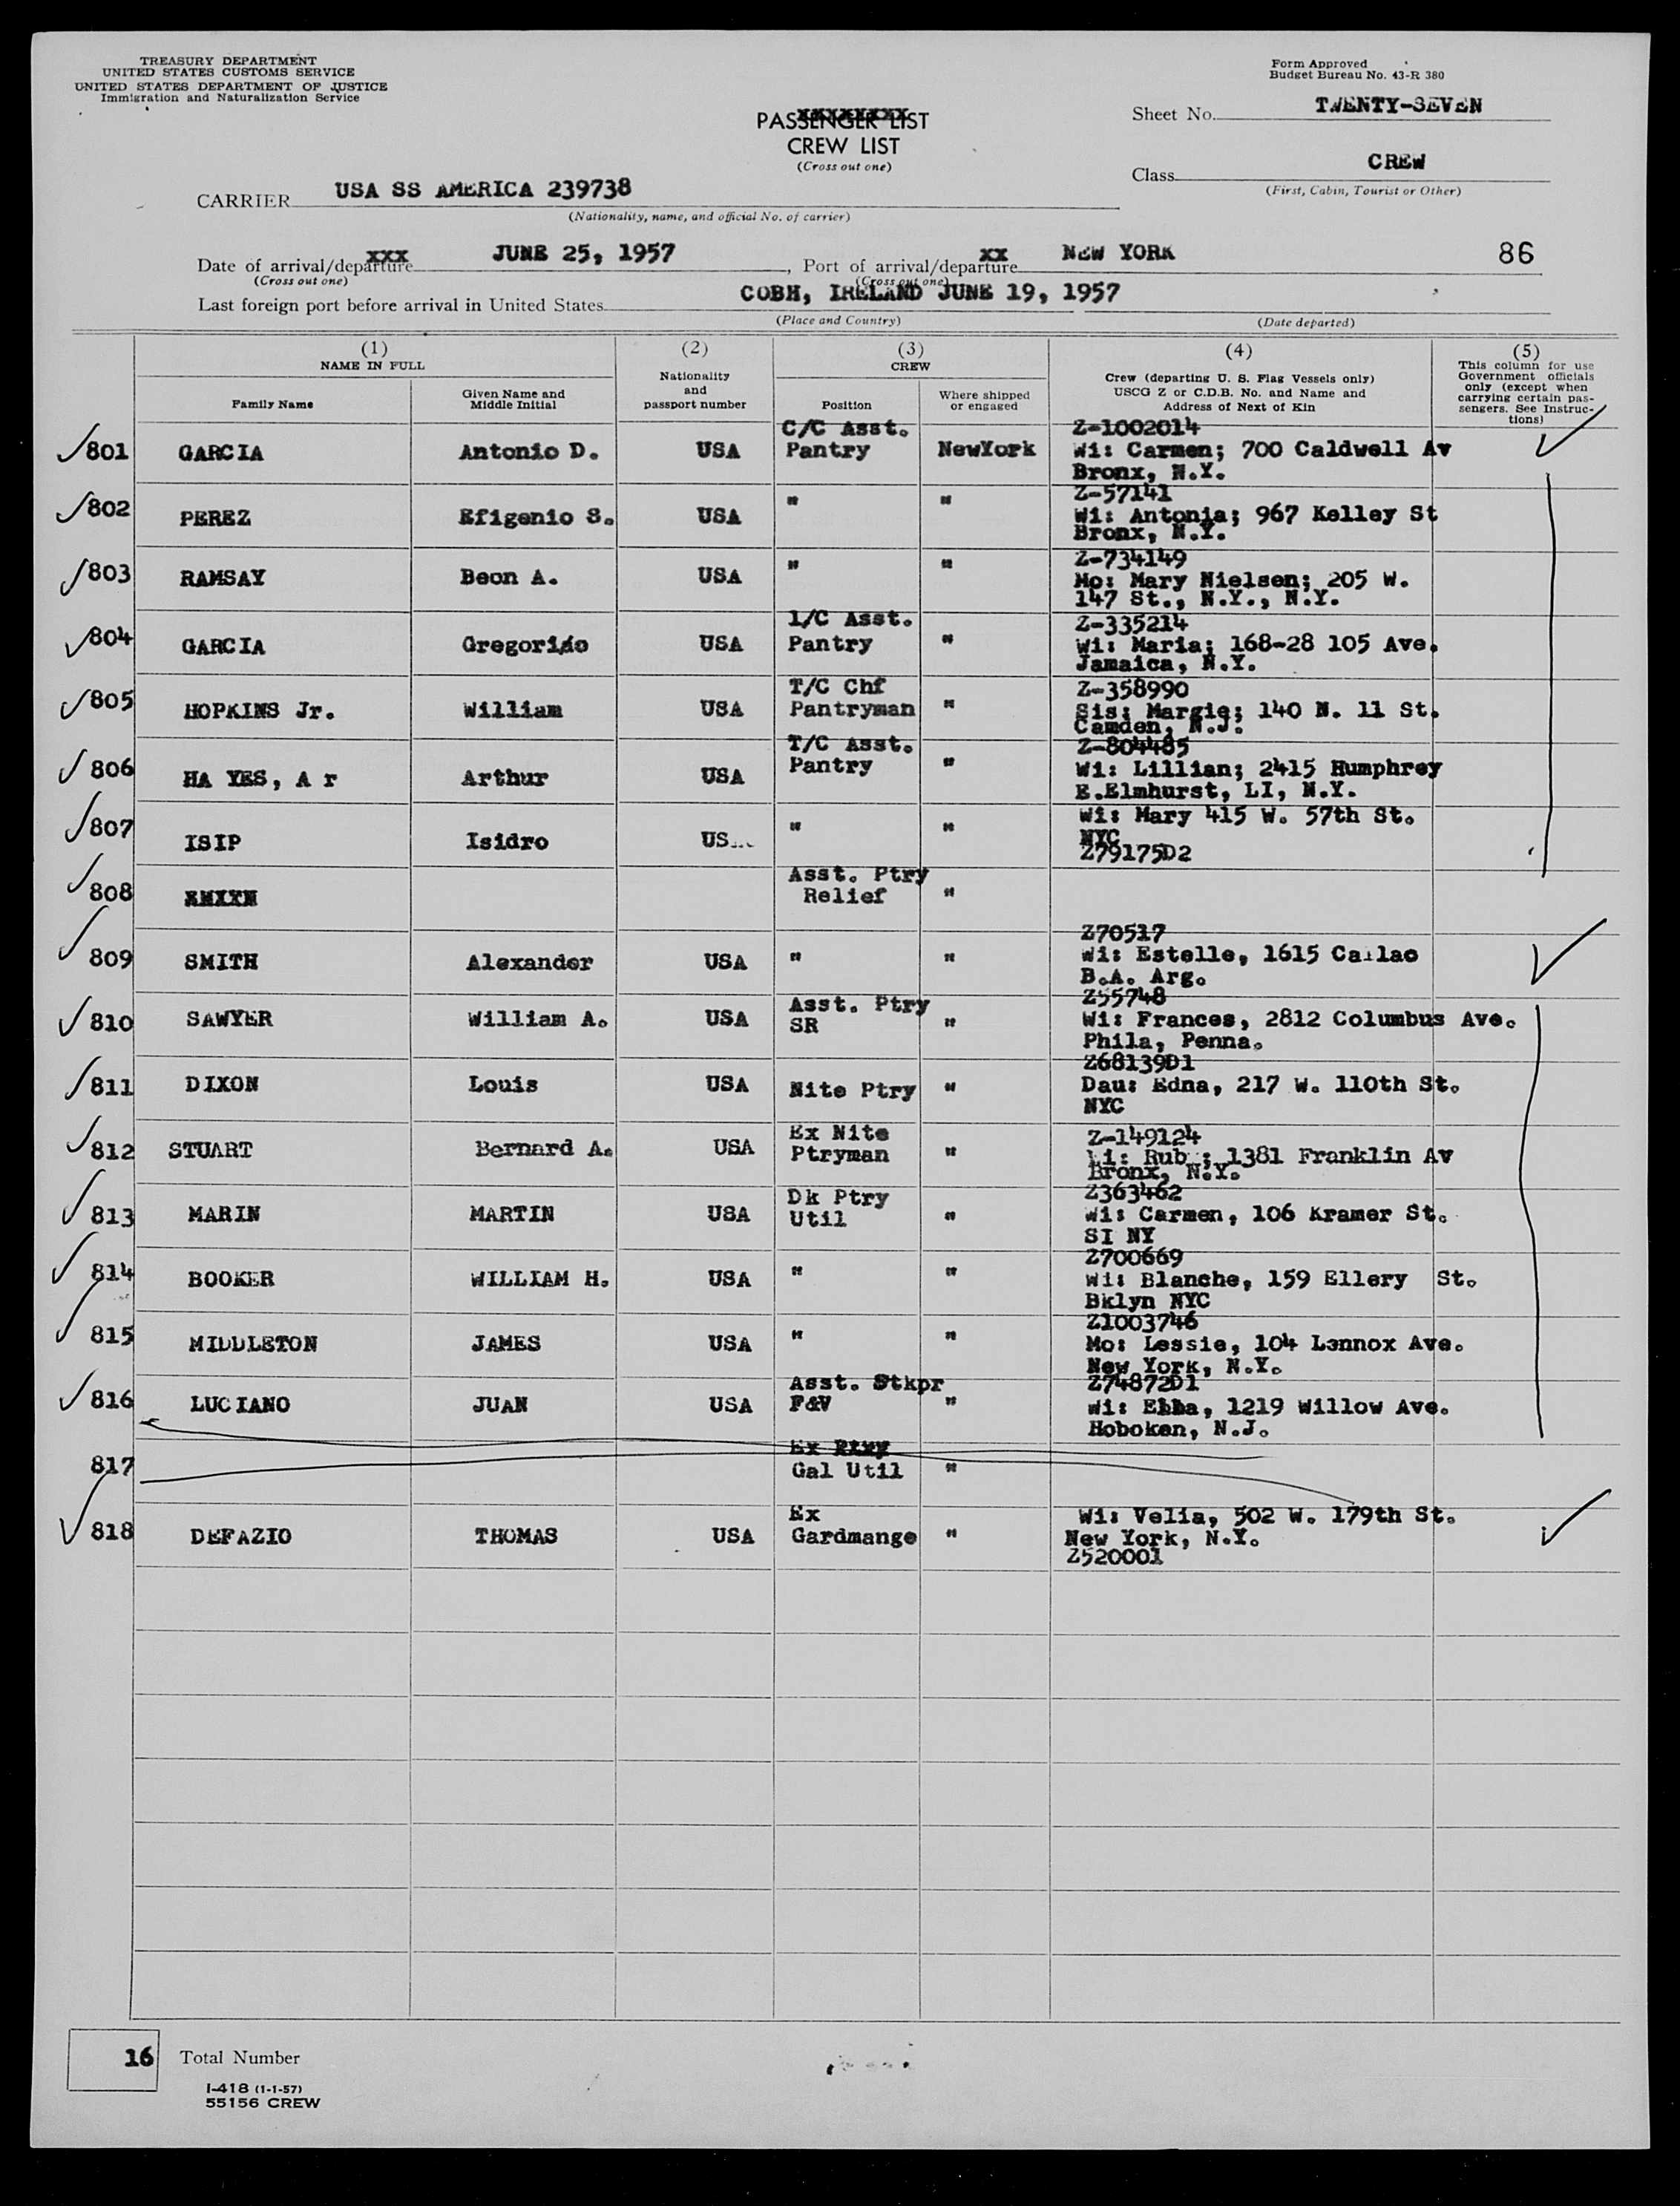 TREASURY DEPARTMENT
UNITED STATES CUSTOMS SERVICE
UNITED STATES DEPARTMENT OF JUSTICE
Immigration and Naturalization Service
Form Approved
Budget Bureau No. 43-R 380
PASSENGER LIST
CREW LIST
(Cross out one)
Sheet No. TWENTY-SEVEN
Class CREW
(First, Cabin, Tourist or Other)
CARRIER USA SS AMERICA 239738
(Nationality, name, and official No. of carrier)
Date of arrival/departure JUNE 25, 1957, Port of arrival/departure NEW YORK 86
(Cross out one) (Cross out one)
Last foreign port before arrival in United States COBH, IRELAND JUNE 19, 1957
(Place and Country) (Date departed)
(1) NAME IN FULL
Family Name
Given Name and Middle Initial
(2) Nationality and passport number
(3) CREW
Position
Where shipped or engaged
(4) Crew (departing U. S. Flag Vessels only) USCG Z or C.D.B. No. and Name and Address of Next of Kin
(5) This column for use Government officials only (except when carrying certain passengers. See Instructions)
801 GARCIA Antonio D. USA C/C Asst. Pantry NewYork Z-1002014 Wi: Carmen; 700 Caldwell Av Bronx, N.Y.
802 PEREZ Efigenio S. USA " " Z-57141 Wi: Antonia; 967 Kelley St Bronx, N.Y.
803 RAMSAY Beon A. USA " " Z-734149 Mo: Mary Nielsen; 205 W. 147 St., N.Y., N.Y.
804 GARCIA Gregorio USA 1/C Asst. Pantry " Z-335214 Wi: Maria; 168-28 105 Ave. Jamaica, N.Y.
805 HOPKINS Jr. William USA T/C Chf Pantryman " Z-358990 Sis: Margie; 140 N. 11 St. Camden, N.J.
806 HA YES, A r Arthur USA T/C Asst. Pantry " Z-804485 Wi: Lillian; 2415 Humphrey E.Elmhurst, LI, N.Y.
807 ISIP Isidro US " " Wi: Mary 415 W. 57th St. NYC Z79175D2
808 Asst. Ptry Relief "
809 SMITH Alexander USA " " Z70517 Wi: Estelle, 1615 Callao B.A. Arg.
810 SAWYER William A. USA Asst. Ptry SR " Z55748 Wi: Frances, 2812 Columbus Ave. Phila, Penna.
811 DIXON Louis USA Nite Ptry " Z68139D1 Dau: Edna, 217 W. 110th St. NYC
812 STUART Bernard A. USA Ex Nite Ptryman " Z-149124 1381 Franklin Av Bronx, N.Y.
813 MARIN MARTIN USA Dk Ptry Util " Z363462 Wi: Carmen, 106 Kramer St. SI NY
814 BOOKER WILLIAM H. USA " " Z700669 Wi: Blanche, 159 Ellery St. Bklyn NYC
815 MIDDLETON JAMES USA " " Z1003746 Mo: Lessie, 104 Lennox Ave. New York, N.Y.
816 LUCIANO JUAN USA Asst. Stkpr F&V " Z74872D1 Wi: Ebba, 1219 Willow Ave. Hoboken, N.J.
817 Ex Gal Util "
818 DEFAZIO THOMAS USA Ex Gardmange " Wi: Velia, 502 W. 179th St. New York, N.Y. Z520001
16 Total Number
I-418 (1-1-57)
55156 CREW